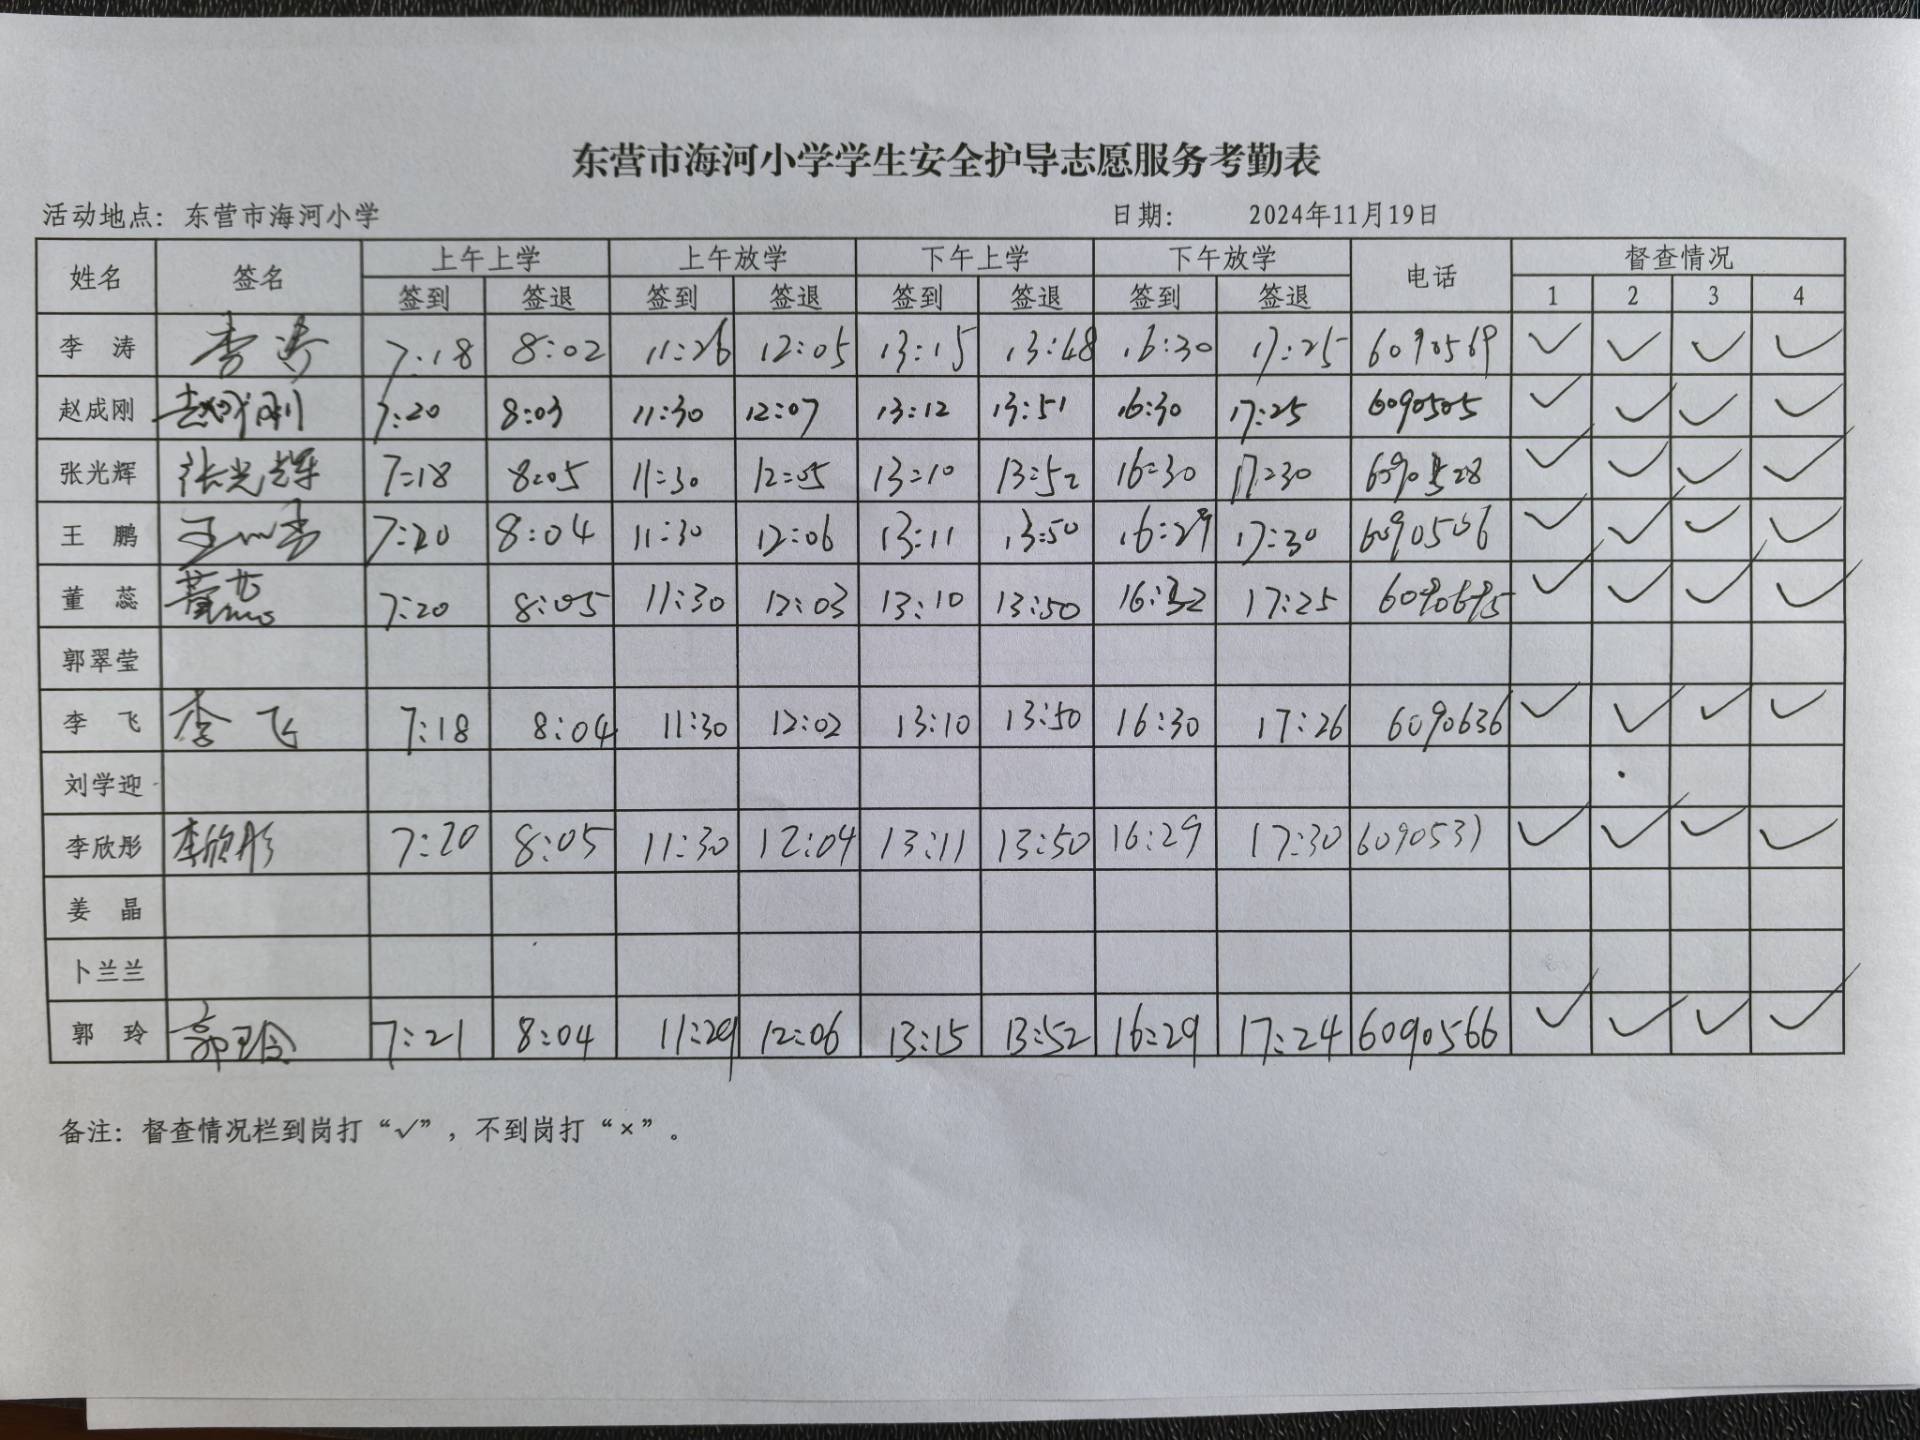 东营市海河小学学生安全护导志愿服务考勤表
活动地点: 东营市海河小学 日期: 2024年11月19日
姓名 签名 上午上学 上午放学 下午上学 下午放学 电话 督查情况
签到 签退 签到 签退 签到 签退 签到 签退 1 2 3 4
李涛 李涛 7:18 8:02 11:26 12:05 13:15 13:48 16:30 17:25 6090569 ✓ ✓ ✓ ✓
赵成刚 赵成刚 7:20 8:03 11:30 12:07 13:12 13:51 16:30 17:25 6090505 ✓ ✓ ✓ ✓
张光辉 张光辉 7:18 8:05 11:30 12:05 13:10 13:52 16:30 17:30 6090528 ✓ ✓ ✓ ✓
王鹏 王鹏 7:20 8:04 11:30 12:06 13:11 13:50 16:29 17:30 6090506 ✓ ✓ ✓ ✓
董蕊 董蕊 7:20 8:05 11:30 12:03 13:10 13:50 16:32 17:25 ✓ ✓ ✓ ✓
郭翠莹
李飞 李飞 7:18 8:04 11:30 12:02 13:10 13:50 16:30 17:26 6090636 ✓ ✓ ✓ ✓
刘学迎
李欣彤 李欣彤 7:20 8:05 11:30 12:04 13:11 13:50 16:29 17:30 6090531 ✓ ✓ ✓ ✓
姜晶
卜兰兰
郭玲 郭玲 7:21 8:04 11:29 12:06 13:15 13:52 16:29 17:24 6090566 ✓ ✓ ✓ ✓
备注: 督查情况栏到岗打“✓”，不到岗打“×”。